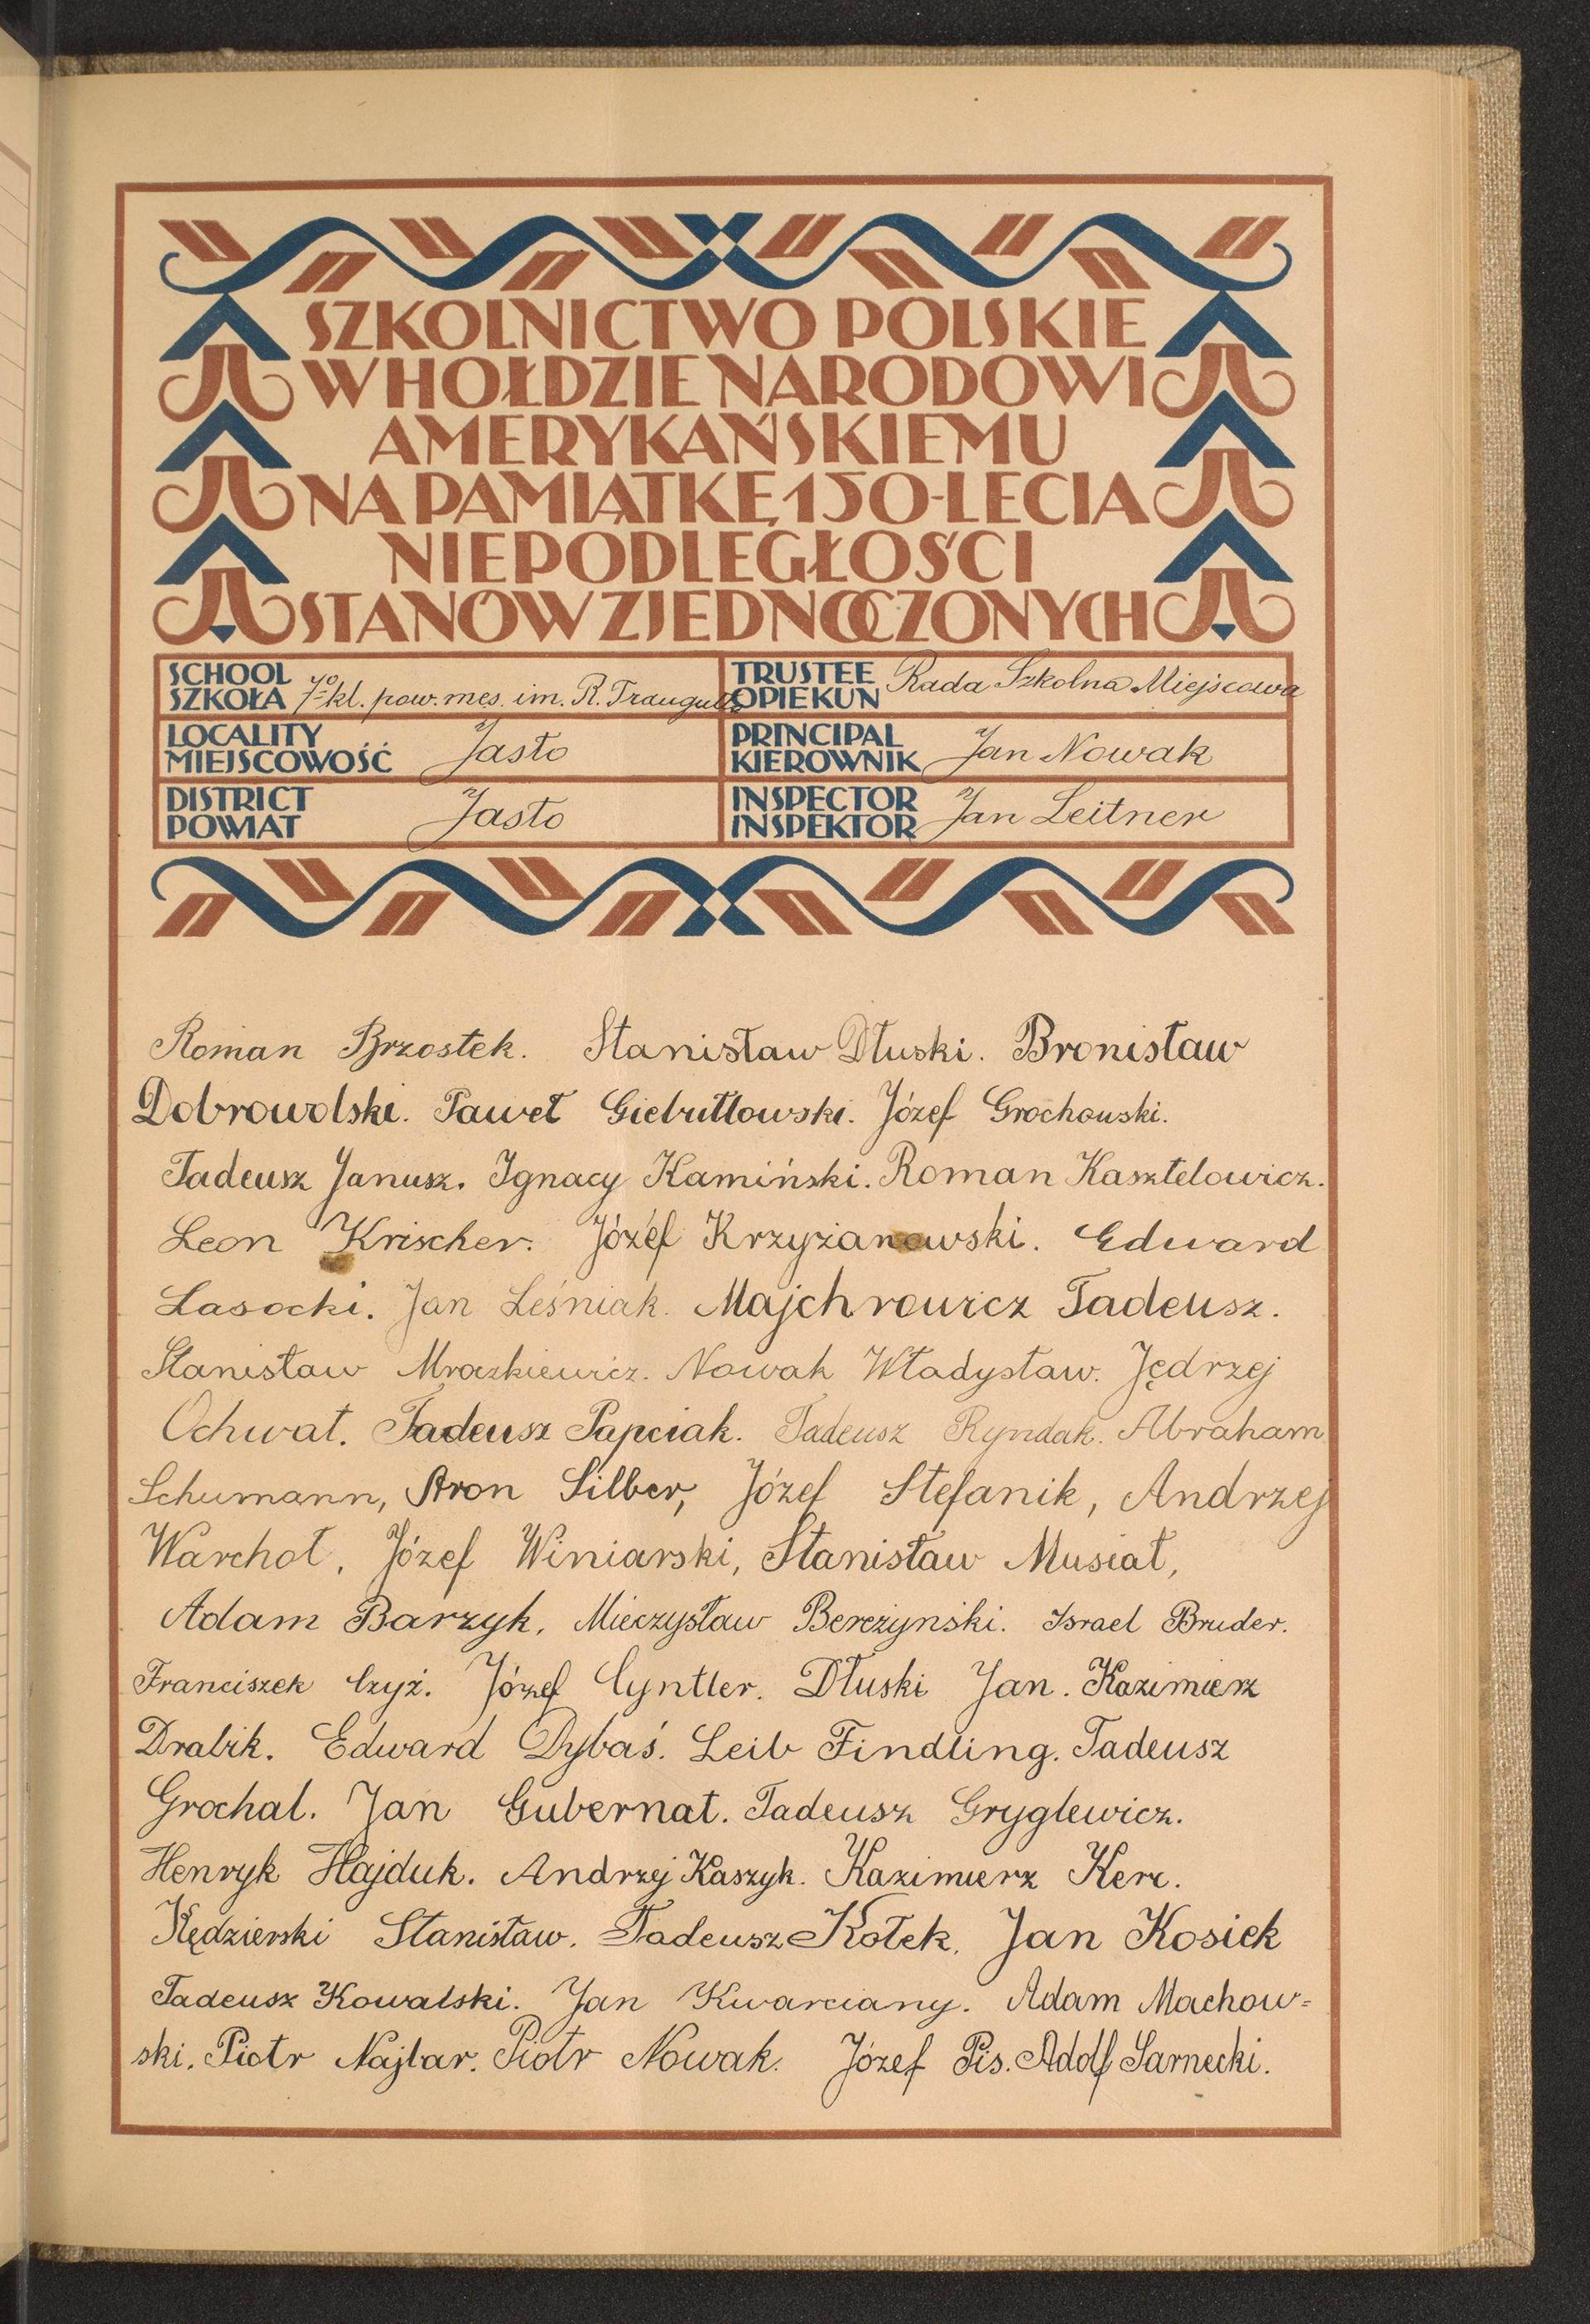 SZKOLNICTWO POLSKIE
W HOŁDZIE NARODOWI
AMERYKAŃSKIEMU
NA PAMIĄTKĘ 150-LECIA
NIEPODLEGŁOŚCI
STANÓW ZJEDNOCZONYCH
SCHOOL
SZKOŁA 7-kl. pow. męs. im. R. Traugutta
TRUSTEE
OPIEKUN Rada Szkolna Miejscowa
LOCALITY
MIEJSCOWOŚĆ Jasło
PRINCIPAL
KIEROWNIK Jan Nowak
DISTRICT
POWIAT Jasło
INSPECTOR
INSPEKTOR Jan Leitner
Roman Brzostek. Stanisław Dłuski. Bronisław
Dobrowolski. Paweł Giebułtowski. Józef Grochowski.
Tadeusz Janusz. Ignacy Kamiński. Roman Kasztelowicz.
Leon Krischer. Józef Krzyżanowski. Edward
Lasocki. Jan Leśniak. Majchrowicz Tadeusz.
Stanisław Mroczkiewicz. Nowak Władysław. Jędrzej
Ochwat. Tadeusz Papciak. Tadeusz Ryndak. Abraham
Schumann, Aron Silber, Józef Stefanik, Andrzej
Warchoł, Józef Winiarski, Stanisław Musiał,
Adam Barzyk. Mieczysław Bereżyński. Israel Bruder.
Franciszek Czyż. Józef Cyntler. Dłuski Jan. Kazimierz
Drabik. Edward Dybaś. Leib Findling. Tadeusz
Grochal. Jan Gubernat. Tadeusz Gryglewicz.
Henryk Hajduk. Andrzej Kaszyk. Kazimierz Kerc.
Kędzierski Stanisław. Tadeusz Kołek. Jan Kosiek
Tadeusz Kowalski. Jan Kwarciany. Adam Machow=
ski. Piotr Najbar. Piotr Nowak. Józef Pis. Adolf Sarnecki.